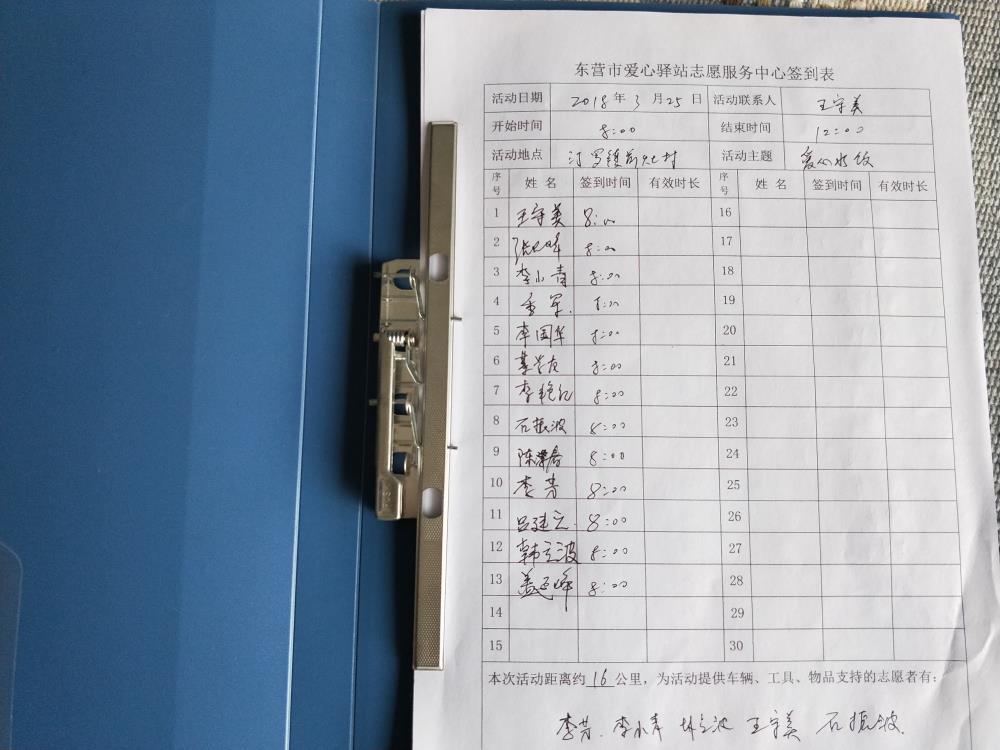 东营市爱心驿站志愿服务中心签到表
活动日期 2018年3月25日 活动联系人 王守美
开始时间 8:00 结束时间 12:00
活动地点 汀罗镇前 村 活动主题 爱心水饺
序号 姓名 签到时间 有效时长 序号 姓名 签到时间 有效时长
1 王守美 8:00 16
2 8:00 17
3 李小青 8:00 18
4 8:00 19
5 李国华 8:00 20
6 8:00 21
7 李艳红 8:00 22
8 石振波 8:00 23
9 陈 8:00 24
10 李芳 8:00 25
11 吕建立 8:00 26
12 韩立波 8:00 27
13 8:00 28
14 29
15 30
本次活动距离约16公里，为活动提供车辆、工具、物品支持的志愿者有：
李芳 李小青 韩立波 王守美 石振波